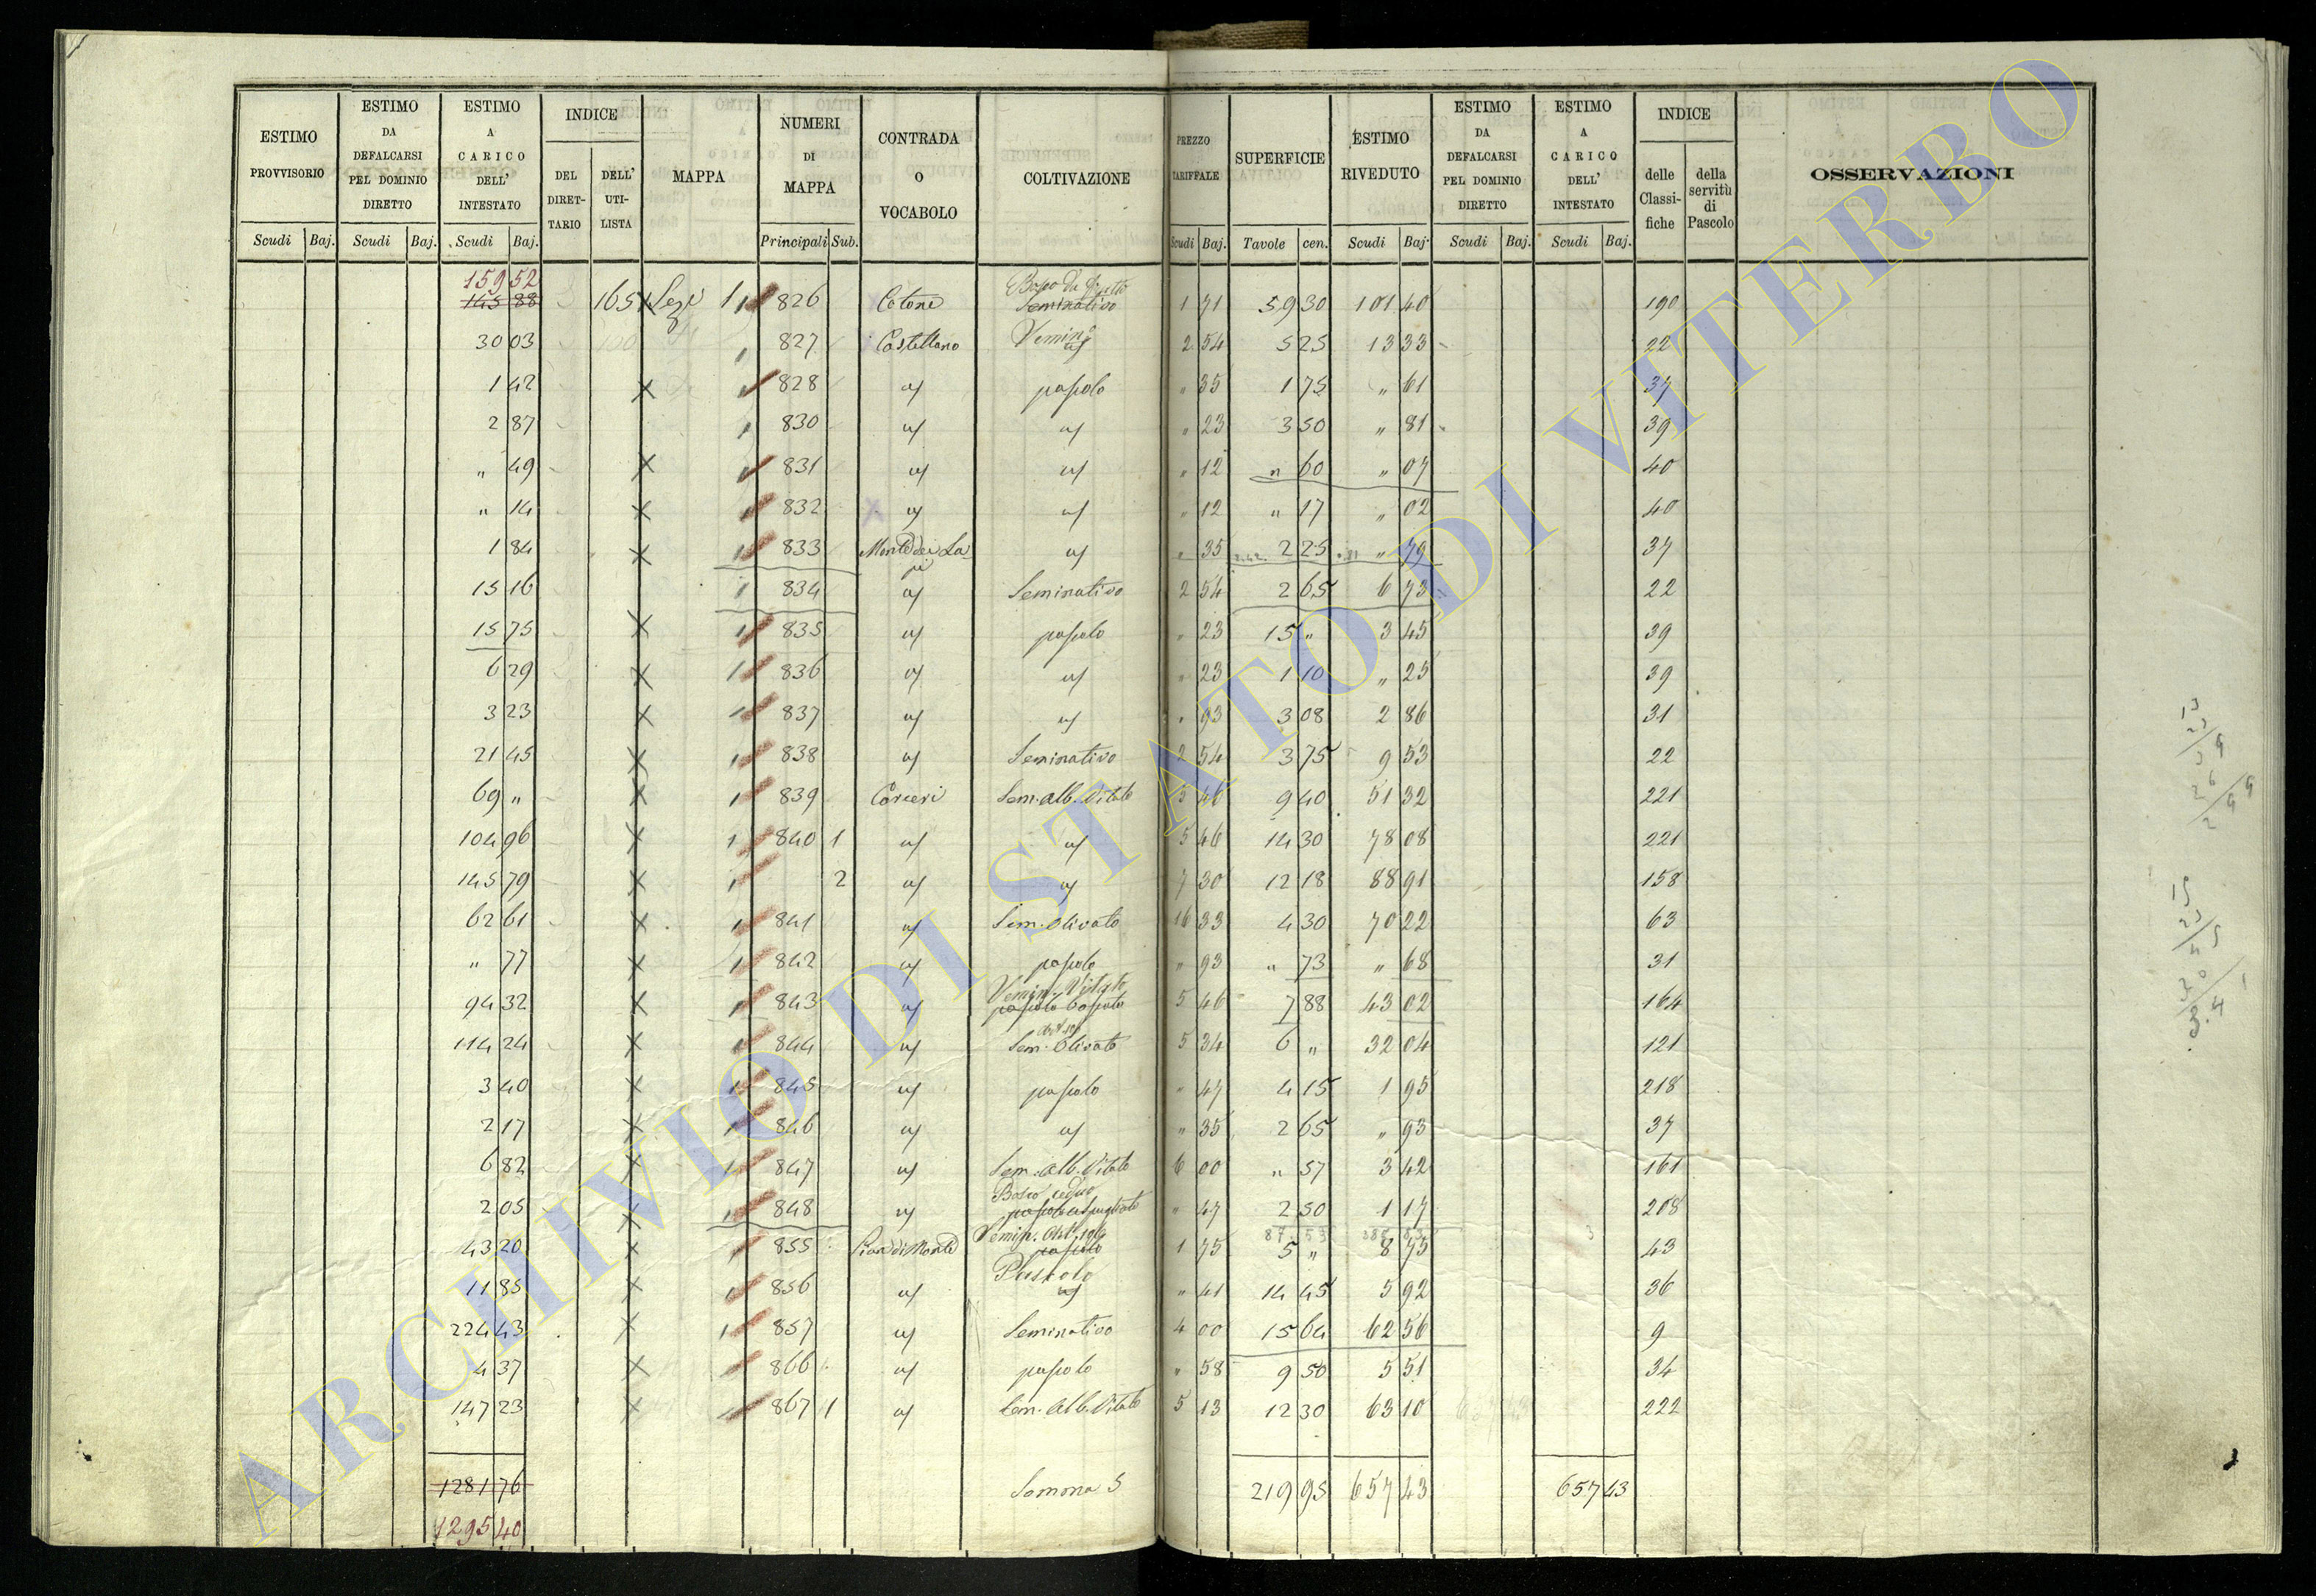 ESTIMO PROVVISORIO | ESTIMO DA DEFALCARSI PEL DOMINIO DIRETTO | ESTIMO A CARICO DELL' INTESTATO | INDICE | MAPPA | NUMERI DI MAPPA | CONTRADA O VOCABOLO | COLTIVAZIONE | PREZZO TARIFFALE | SUPERFICIE | ESTIMO RIVEDUTO | ESTIMO DA DEFALCARSI PEL DOMINIO DIRETTO | ESTIMO A CARICO DELL' INTESTATO | INDICE | OSSERVAZIONI
DEL DIRET-TARIO | DELL' UTI-LISTA | delle Classi-fiche | della servitù di Pascolo
Scudi Baj. | Scudi Baj. | Scudi Baj. | Principali Sub. | Scudi Baj. | Tavole cen. | Scudi Baj. | Scudi Baj. | Scudi Baj.
159 52
145 88 165 x 1 826 Cotone Seminativo 1 71 59 30 101 40 190
30 03 827 Castellano Semin° 2 54 5 25 13 33 22
1 42 x 828 " pascolo " 35 1 75 " 61 37
2 87 830 " " " 23 3 50 " 81 39
" 49 x 831 " " " 12 " 60 " 07 40
" 14 x 832 " " " 12 " 17 " 02 40
1 84 x 833 " " 35 2 25 " 79 37
15 16 1 834 " Seminativo 2 54 2 65 6 73 22
15 75 x 1 835 " pascolo " 23 15 " 3 45 39
6 29 x 1 836 " " " 23 1 10 " 25 39
3 23 x 1 837 " " " 93 3 08 2 86 31
21 45 x 1 838 " Seminativo 2 54 3 75 9 53 22
69 " x 1 839 Carceri Sem. Alb. Vitato 5 46 9 40 51 32 221
104 96 x 1 840 1 " " 5 46 14 30 78 08 221
145 79 x 1 2 " " 7 30 12 18 88 91 158
62 61 x 1 841 " Sem. Olivato 16 33 4 30 70 22 63
" 77 x 1 842 " pascolo " 93 " 73 " 68 31
Semin. Vitato
94 32 x 1 843 " pascolo 5 46 7 88 43 02 164
114 24 x 1 844 " Sem. Olivato 5 34 6 " 32 04 121
3 40 x 1 845 " pascolo " 47 4 15 1 95 218
2 17 x 1 846 " " " 35 2 65 " 93 37
6 82 x 1 847 " Sem. Alb. Vitato 6 00 " 57 3 42 161
Bosco ceduo
2 05 x 1 848 " pascolo cespugliato " 47 2 50 1 17 208
87 53
43 20 x 1 855 pascolo 1 75 5 " 8 75 43
Pascolo
11 85 x 1 856 " " " 41 14 45 5 92 36
224 43 x 1 857 " Seminativo 4 00 15 64 62 56 9
4 37 x 866 " pascolo " 58 9 50 5 51 34
147 23 x 867 1 " Sem. Alb. Vitato 5 13 12 30 63 10 222
1281 76 Somma S 219 95 657 43 657 43
1295 40
ARCHIVIO DI STATO DI VITERBO